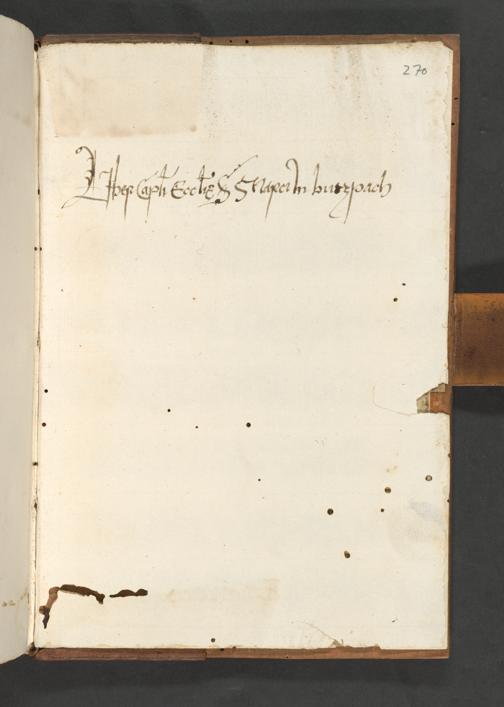 270
Liber Capli Ecclie S Marci In butzpach